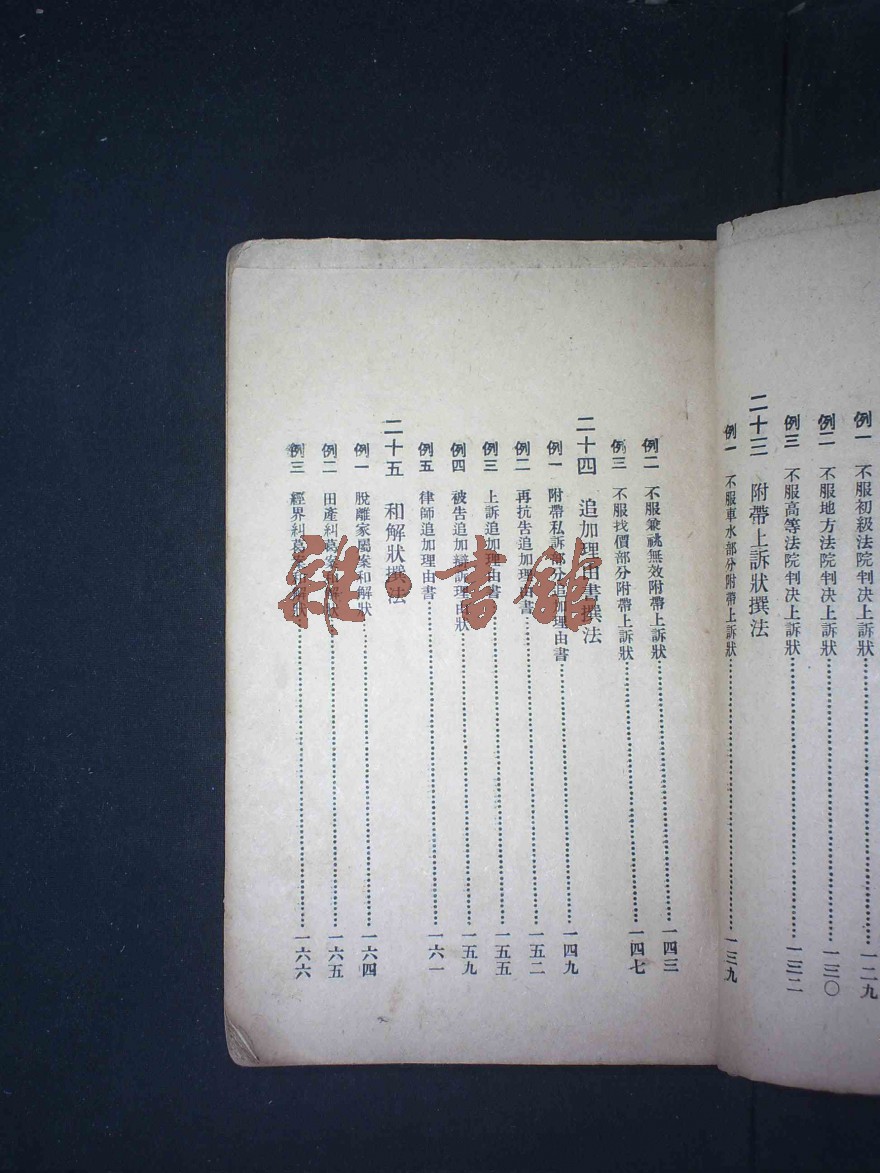 例一　不服初級法院判決上訴狀……一二九
例二　不服地方法院判決上訴狀……一三〇
例三　不服高等法院判決上訴狀……一三二
二十三　附帶上訴狀撰法
例一　不服車水部分附帶上訴狀……一三九
例二　不服兼祧無效附帶上訴狀……一四三
例三　不服找價部分附帶上訴狀……一四七
二十四　追加理由書撰法
例一　附帶私訴部分追加理由書……一四九
例二　再抗告追加理由書……一五二
例三　上訴追加理由書……一五五
例四　被告追加辯訴理由狀……一五九
例五　律師追加理由書……一六一
二十五　和解狀撰法
例一　脫離家屬案和解狀……一六四
例二　田產糾葛案和解狀……一六五
例三　經界糾葛案和解狀……一六六
雜·書館